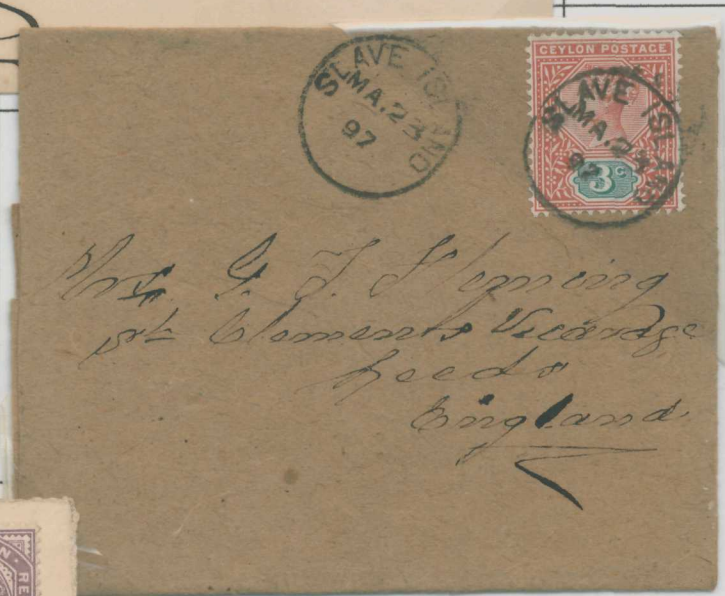 SLAVE ISLAND
MA.23
97
CEYLON POSTAGE
3c
SLAVE ISLAND
MA.23
97
Mrs G. F. Fleming
St. Clements Vicarage
Leeds
England.